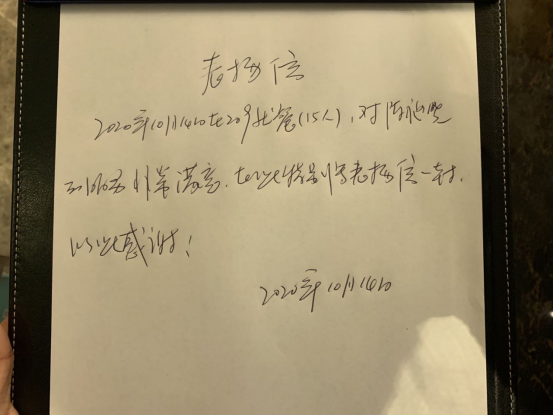 表扬信
2020年10月14日在20号就餐(15人),对陈
的服务非常满意,在此特别写表扬信一封,
以此感谢!
2020年10月14日